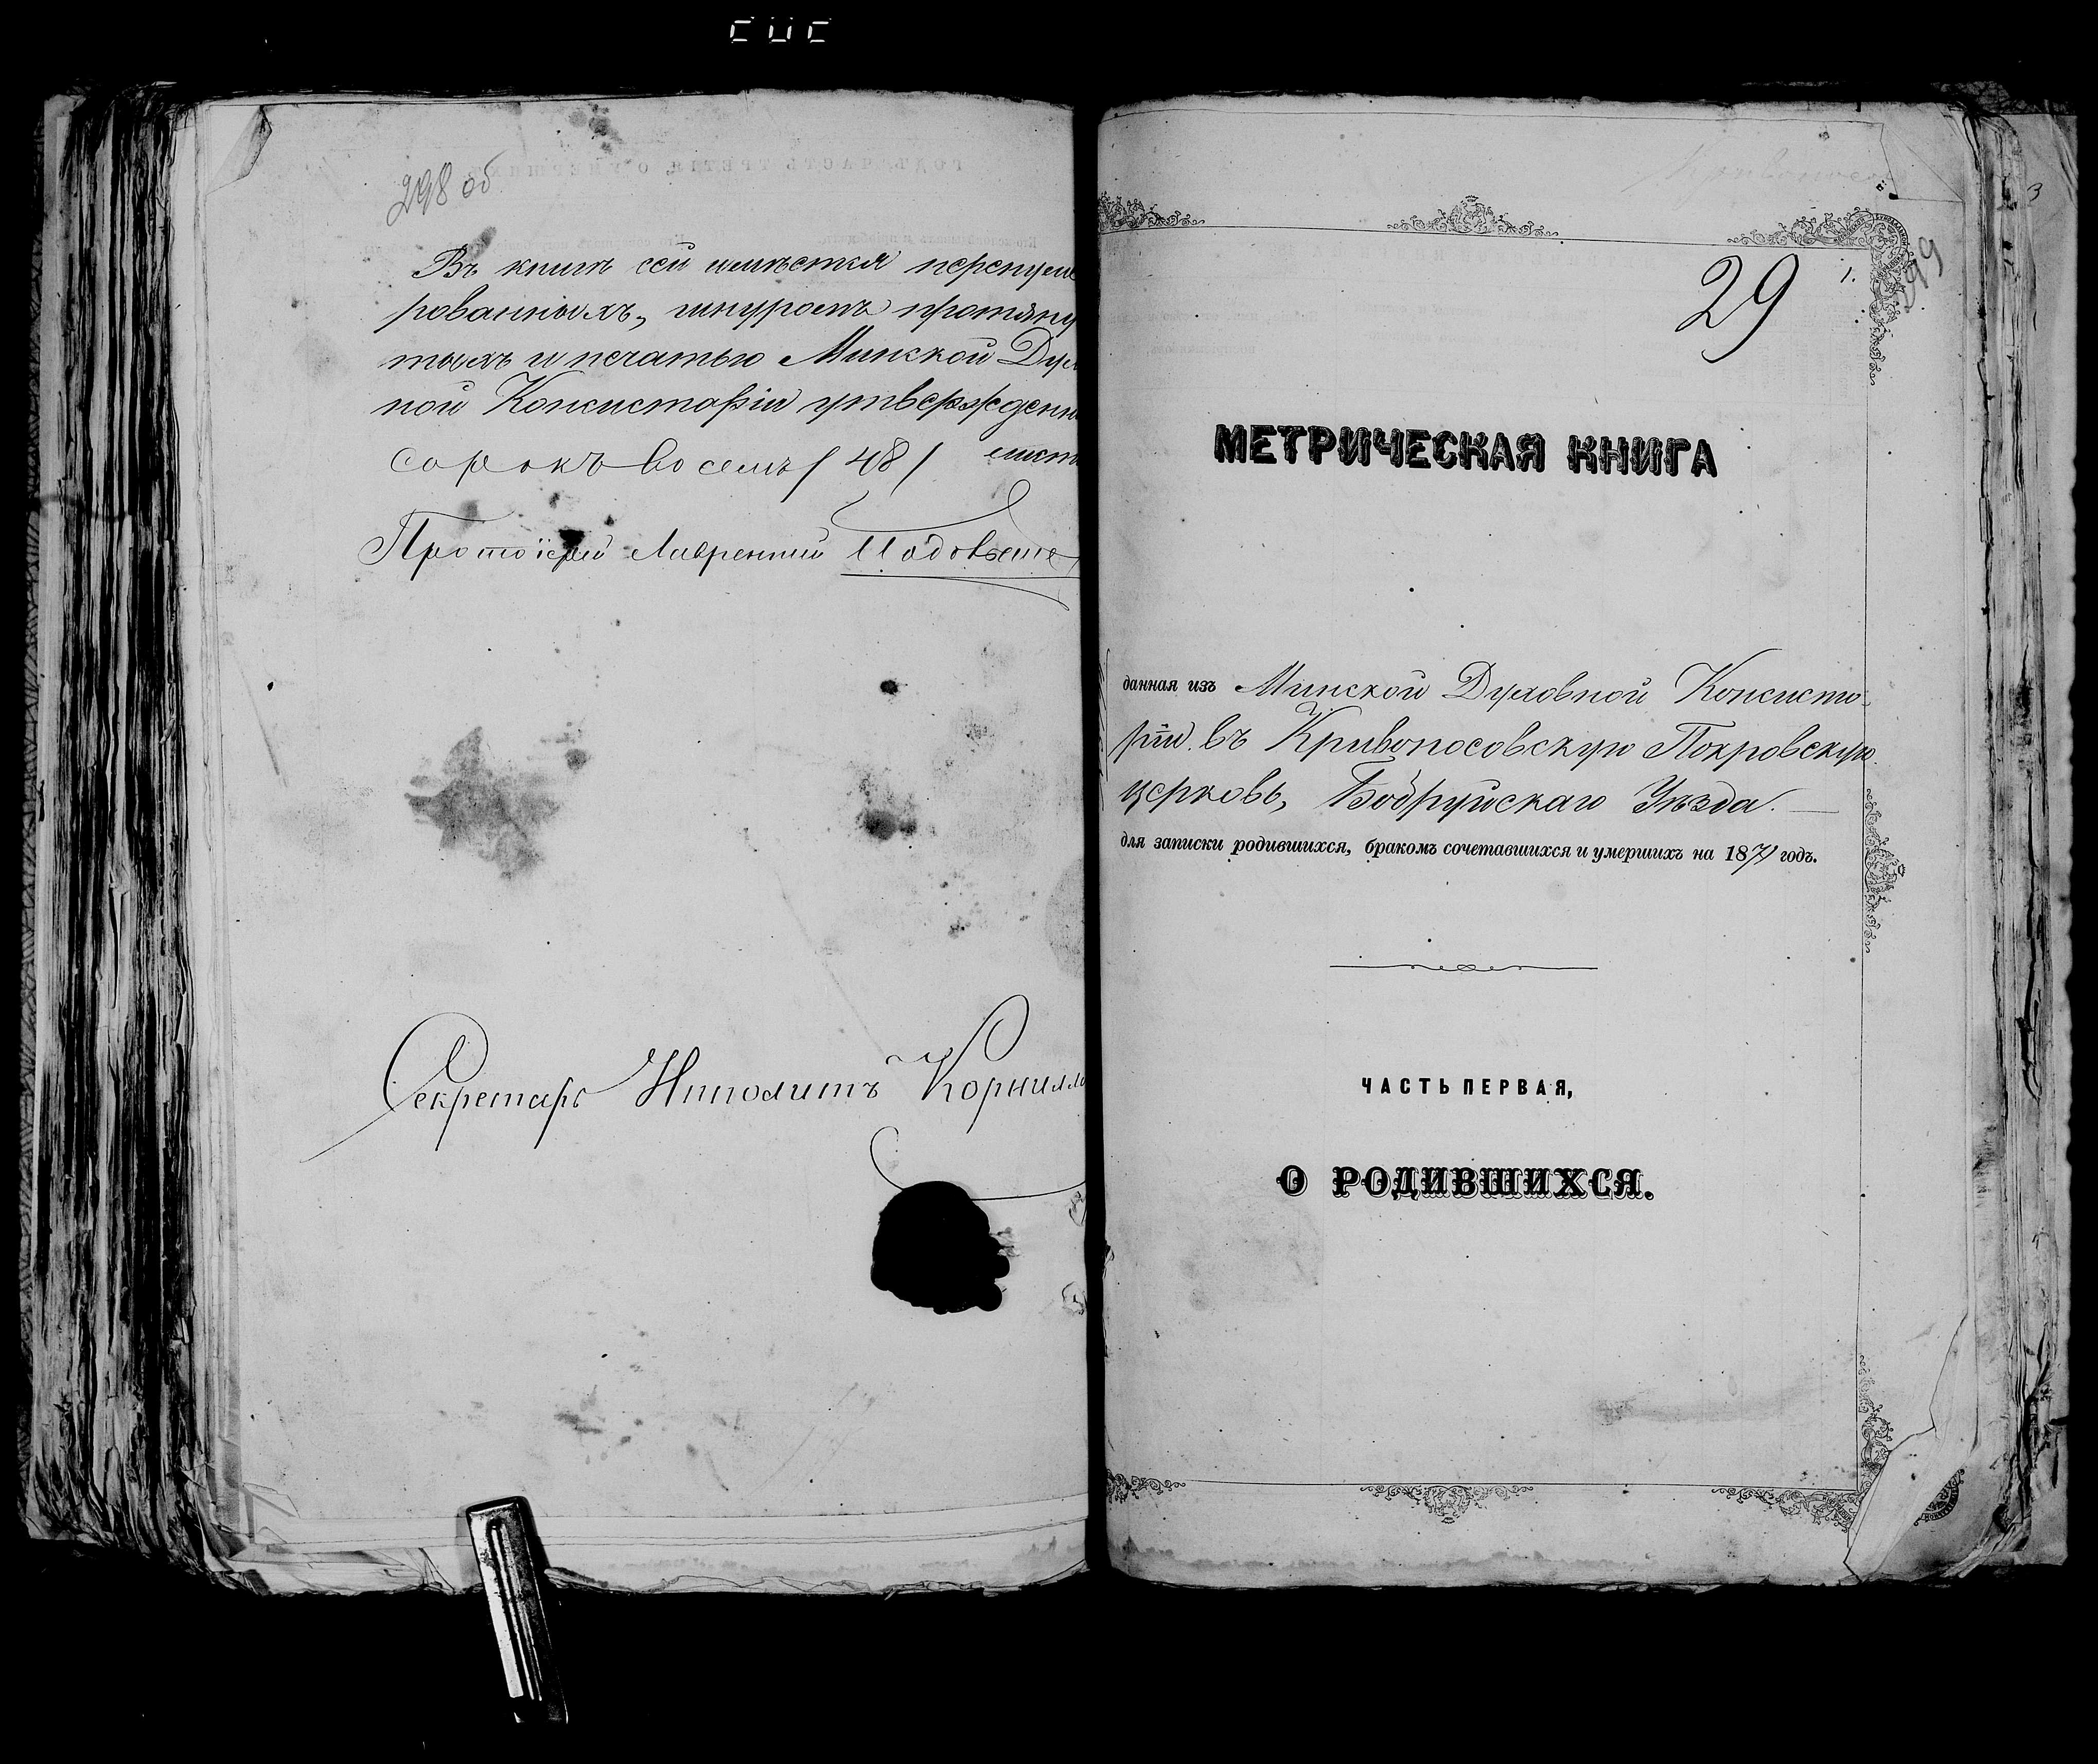 298 об
Въ книгѣ сей имѣется перенуме
рованныхъ, шнуромъ протяну
тыхъ и печатью Минской Дух
ной Консисторіи утвержденн
сорокъ восемь / 48 / лист
Протоіерей Лаврентій
Секретарь Ипполитъ Корнил
29
1.
299
МЕТРИЧЕСКАЯ КНИГА
данная изъ Минской Духовной Консисто-
ріи въ Кривоносовскую Покровскую
церковь, Бобруйскаго Уѣзда.
для записки родившихся, бракомъ сочетавшихся и умершихъ на 1871 годъ.
ЧАСТЬ ПЕРВАЯ,
О РОДИВШИХСЯ.